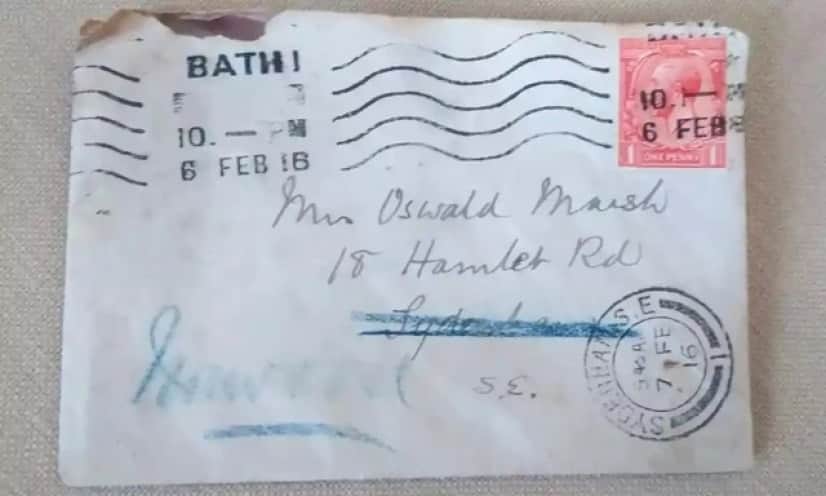 BATH 1
10. — PM
6 FEB 16
10. —
6 FEB
1 ONE PENNY 1
Mrs Oswald Marsh
18 Hamlet Rd
Sydenham
Norwood
S.E.
SYDENHAM S.E.
7 FE
16